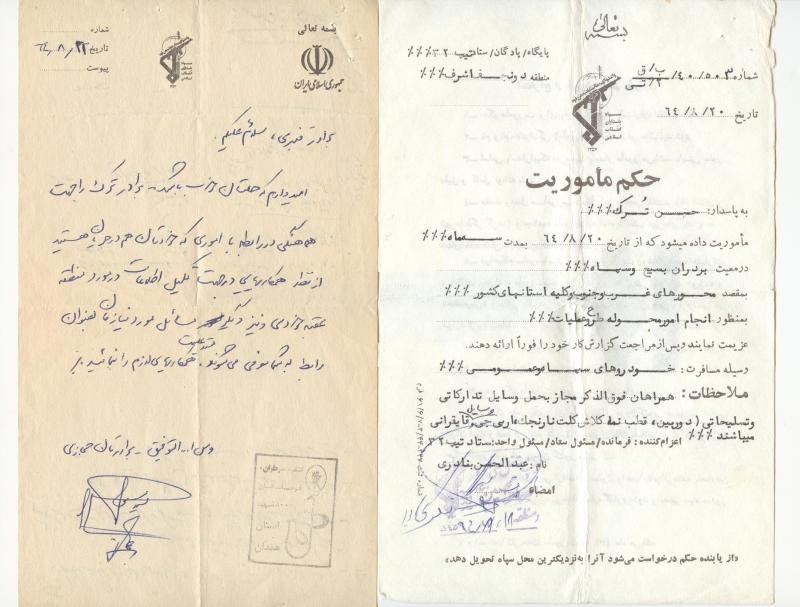 بسمه تعالی
جمهوری اسلامی ایران
شماره
تاریخ ۶۴/۸/۲۲
پیوست
برادر قنبری، سلام علیکم.
امیدوارم که حالتان خوب باشد برادر ترک را جهت
هماهنگی در رابطه با اموری که خودتان هم در جریان هستید
از نظر همکاریهای در جهت تکمیل اطلاعات در مورد منطقه
مسائل مورد نیازتان بعنوان
رابط به شما معرفی می‌شوند. همکاریهای لازم را بنمائید.
ومن ا... التوفیق - برادرتان
استان
همدان
بسمه تعالی
شماره ۴۰/۵۰۳/
تاریخ ۶۴/۸/۲۰
پایگاه/پادگان/ستاد تیپ ۳۲٪٪٪
منطقه دونجف اشرف٪٪٪
سپاه
پاسداران
انقلاب
اسلامی
حکم مأموریت
به پاسدار: حسن تُرک٪٪٪
مأموریت داده میشود که از تاریخ ۶۴/۸/۲۰ بمدت سه ماه٪٪٪
درمعیت برادران بسیج وسپاه٪٪٪
بمقصد محورهای غرب وجنوب وکلیه استانهای کشور٪٪٪
بمنظور انجام امورمحوله طرح وعملیات٪٪٪
عزیمت نمایند وپس از مراجعت گزارش کار خود را فوراً ارائه دهند.
وسیله مسافرت: خودروهای سپاه وعمومی٪٪٪
ملاحظات: همراهان فوق الذکر مجاز بحمل وسایل تدارکاتی
وتسلیحاتی (دوربین، قطب نما، کلاش کلت نارنجک، آرپی جی، قایقرانی
وسایل
میباشند٪٪٪ اعزام کننده: فرمانده/مسئول ستاد/مسئول واحد: ستاد تیپ ۳۲
نام: عبدالحسن بنادری
امضاء
«از یابنده حکم درخواست می‌شود آنرا به نزدیکترین محل سپاه تحویل دهد»